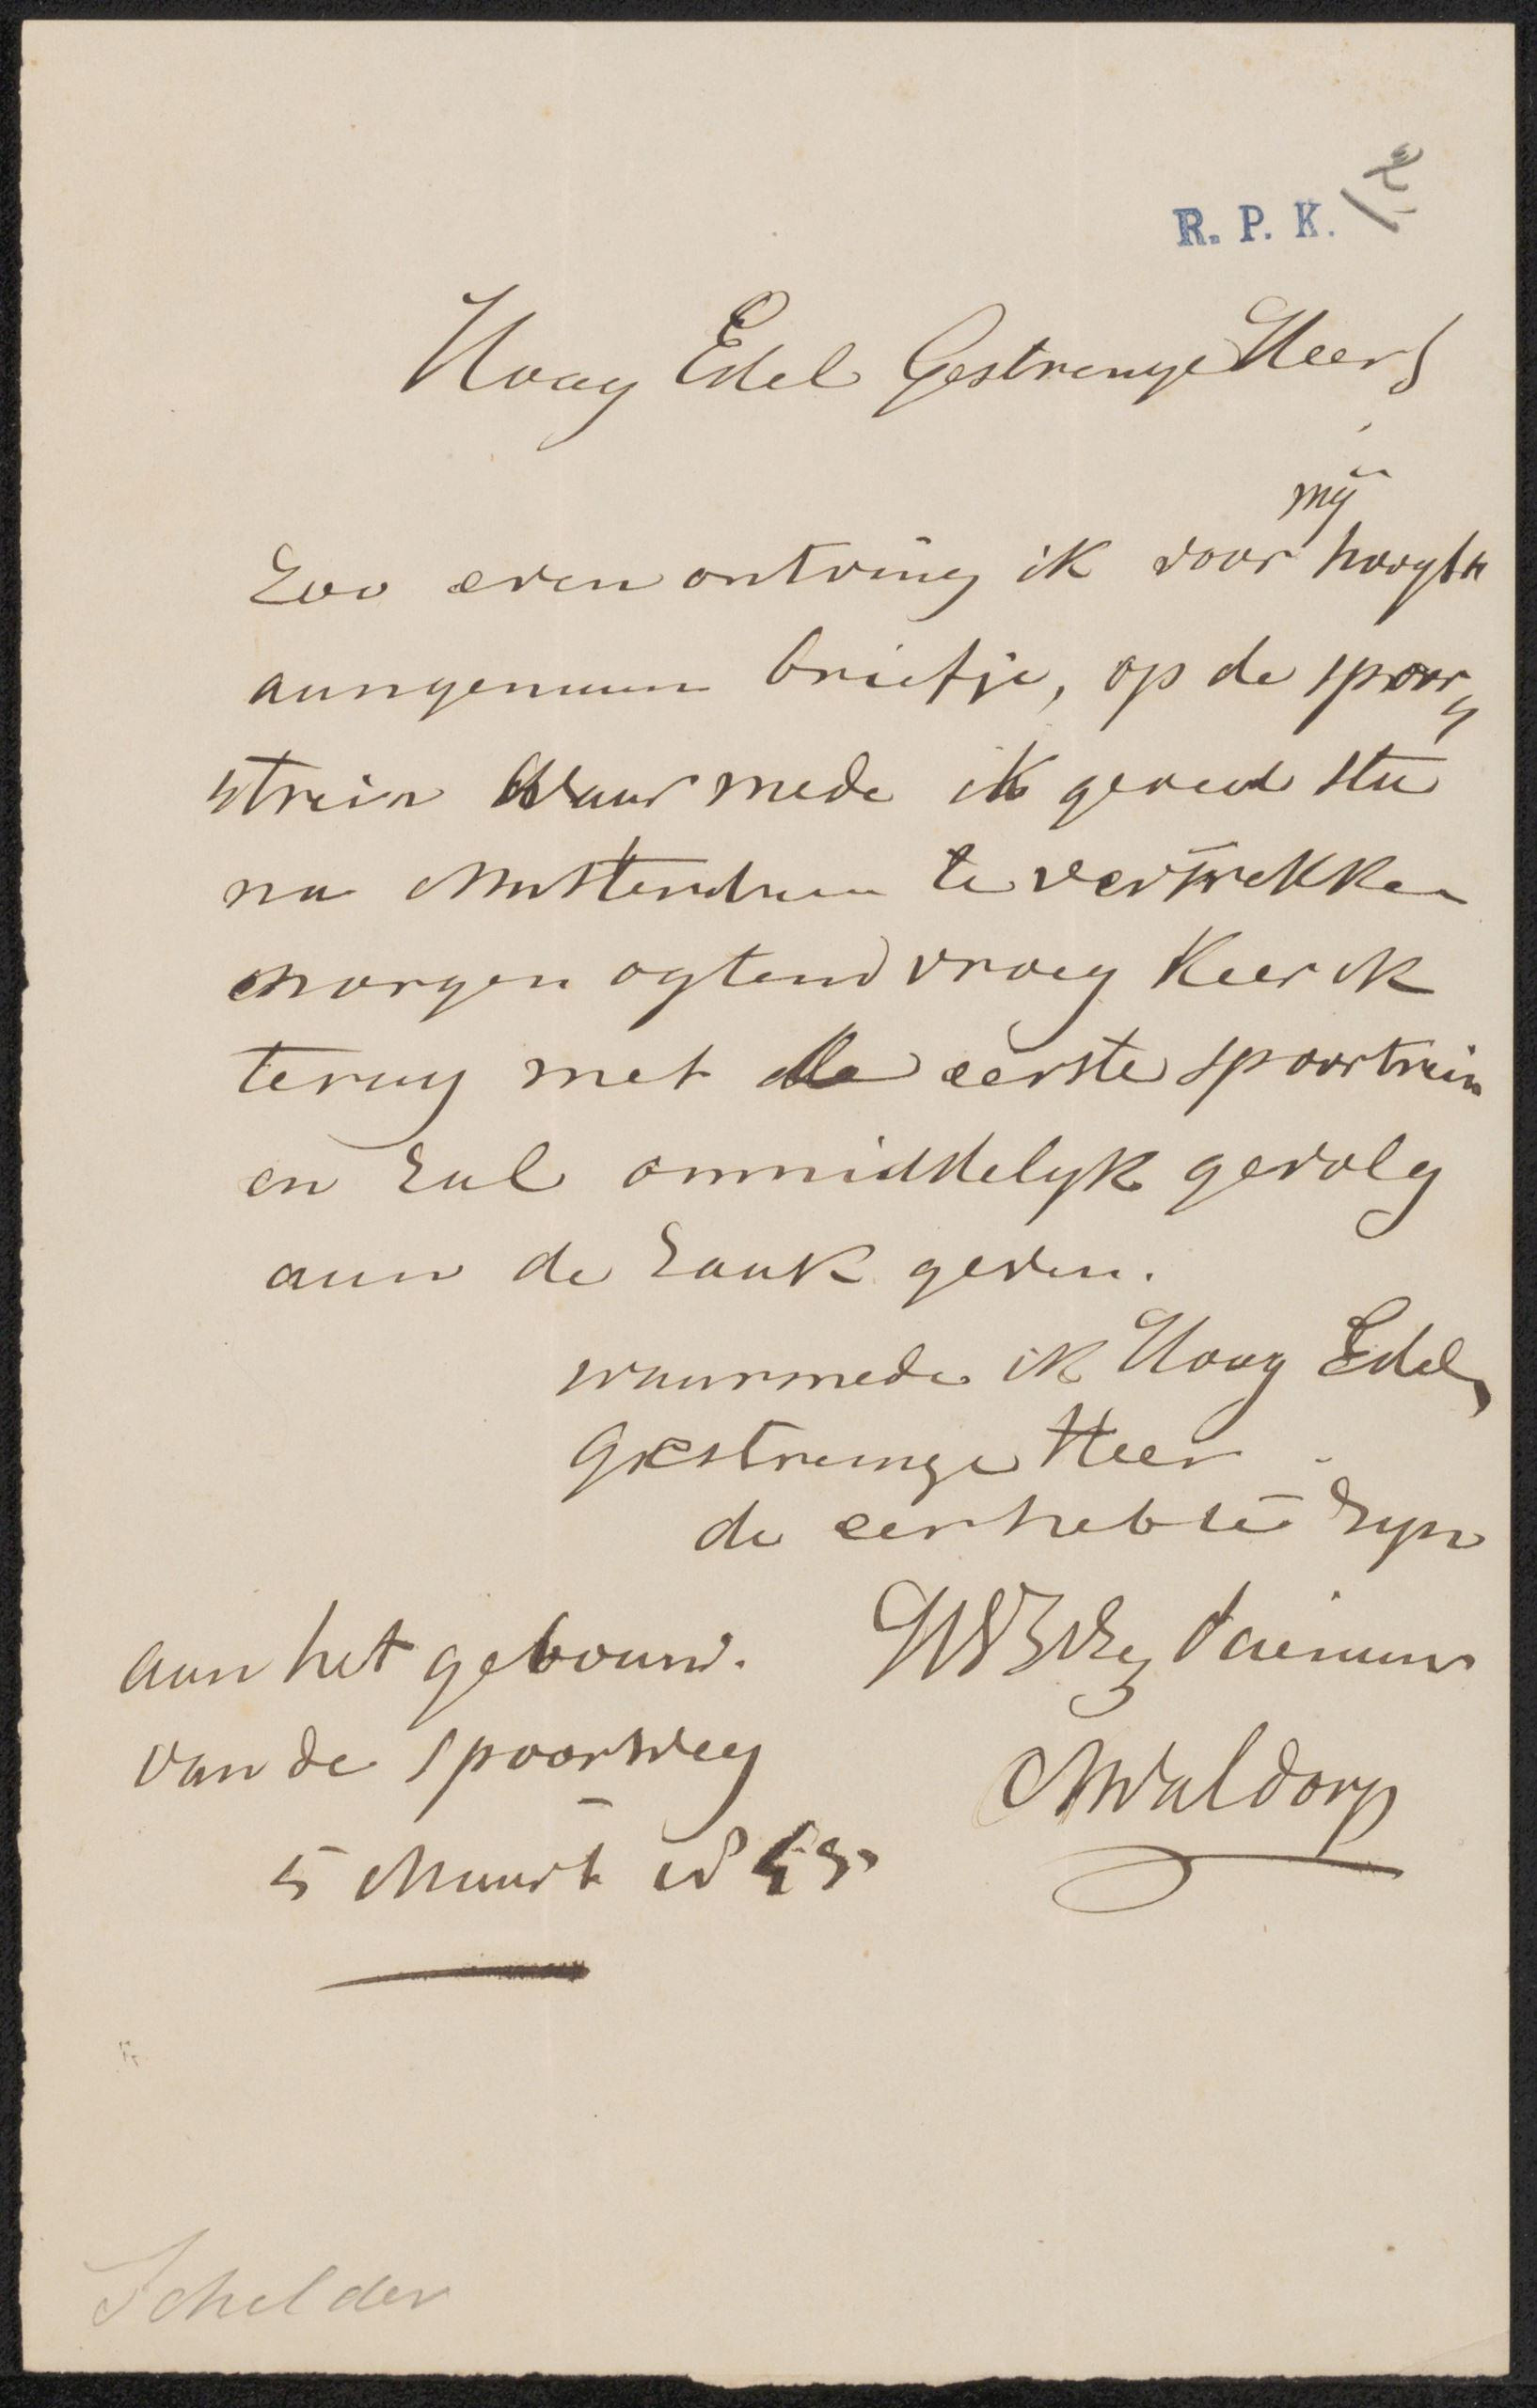 R. P. K.
Hoog Edel Gestrenge Heer
mij
Zoo even ontving ik voor hoogst
aangenaam briefje, op de spoor
trein waarmede ik gereed sta
na Amsterdam te vertrekken
morgen ogtend vroeg keer ik
terug met de eerste spoortrein
en zal onmiddelyk gevolg
aan de zaak geven.
waarmede ik Hoog Edel
Gestrenge Heer
de eer heb te zyn
aan het gebouw. dienaar
van de spoorweg
AWaldorp
5 Maart
Schilder